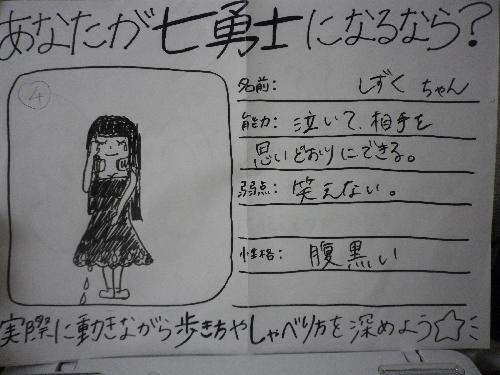 あなたが七勇士になるなら?
④
名前: しずくちゃん
能力: 泣いて、相手を
思いどおりにできる。
弱点: 笑えない。
性格: 腹黒い
実際に動きながら歩き方やしゃべり方を深めよう☆